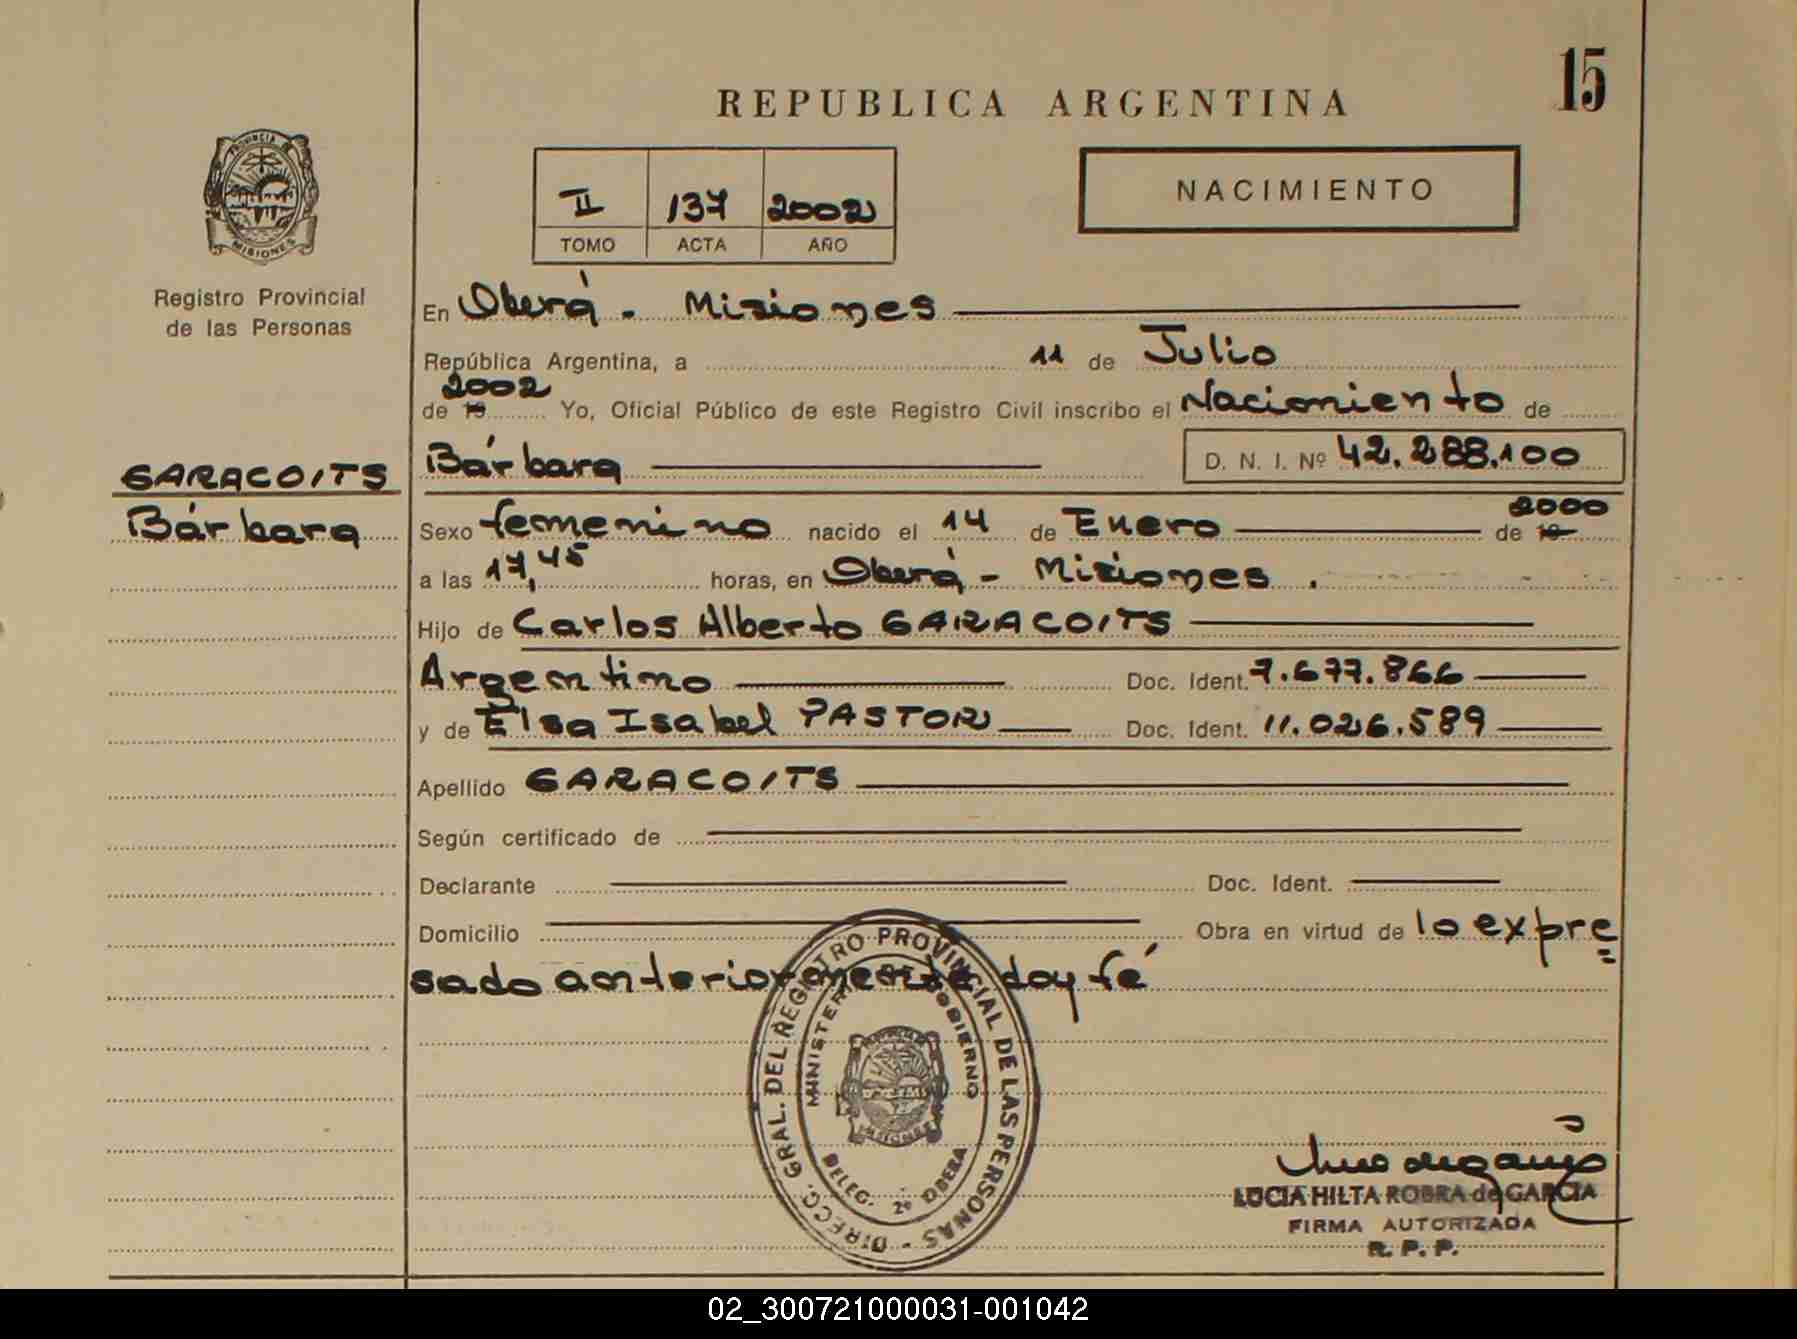 15
REPUBLICA ARGENTINA
PROVINCIA DE
MISIONES
II 137 2002
TOMO ACTA AÑO
NACIMIENTO
Registro Provincial
de las Personas
En Oberá - Misiones
República Argentina, a 11 de Julio
2002
de 19 Yo, Oficial Público de este Registro Civil inscribo el Nacimiento de
Bárbara D. N. I. Nº 42.288.100
GARACOITS
Bárbara
2000
Sexo femenino nacido el 14 de Enero de 19
a las 17,45 horas, en Oberá - Misiones .
Hijo de Carlos Alberto GARACOITS
Argentino Doc. Ident. 7.677.866
y de Elsa Isabel PASTOR Doc. Ident. 11.026.589
Apellido GARACOITS
Según certificado de
Declarante Doc. Ident.
Domicilio Obra en virtud de lo expre
sado anteriormente doy fé
DIRECC. GRAL. DEL REGISTRO PROVINCIAL DE LAS PERSONAS -
MINISTERIO DE GOBIERNO
MISIONES
DELEG. 2º OBERA
LUCIA HILTA ROBRA de GARCIA
FIRMA AUTORIZADA
R. P. P.
02_300721000031-001042